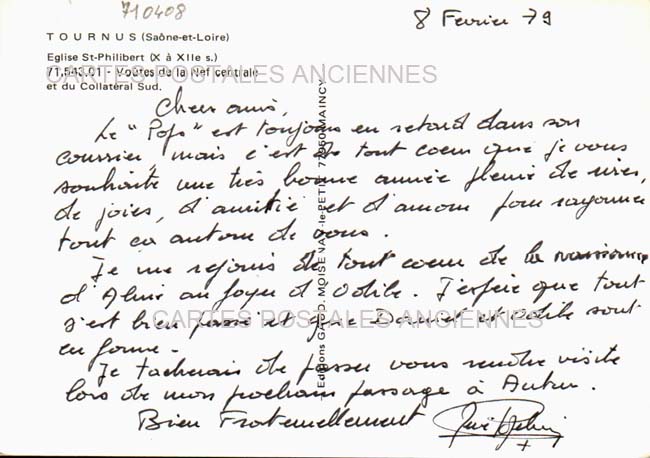 710408
8 Février 79
TOURNUS (Saône-et-Loire)
Eglise St-Philibert (X à XIIe s.)
71.543.01 - Voûtes de la Nef centrale
et du Collatéral Sud.
CARTES POSTALES ANCIENNES
Chers amis,
Le "Pops" est toujours en retard dans son
courrier, mais c'est de tout coeur que je vous
souhaite une très bonne année pleine de rires,
de joies, d'amitié et d'amour pour rayonner
tout en autour de vous.
Je me réjouis de tout coeur de la naissance
d'Aline au foyer d'Odile. J'espère que tout
s'est bien passé et que Daniel et Odile sont
en forme.
CARTES POSTALES ANCIENNES
Je tacherais de passer vous rendre visite
lors de mon prochain passage à Autun.
Bien Fraternellement
Editions GAUD. MOISENAY-le-PETIT 77950 MAINCY